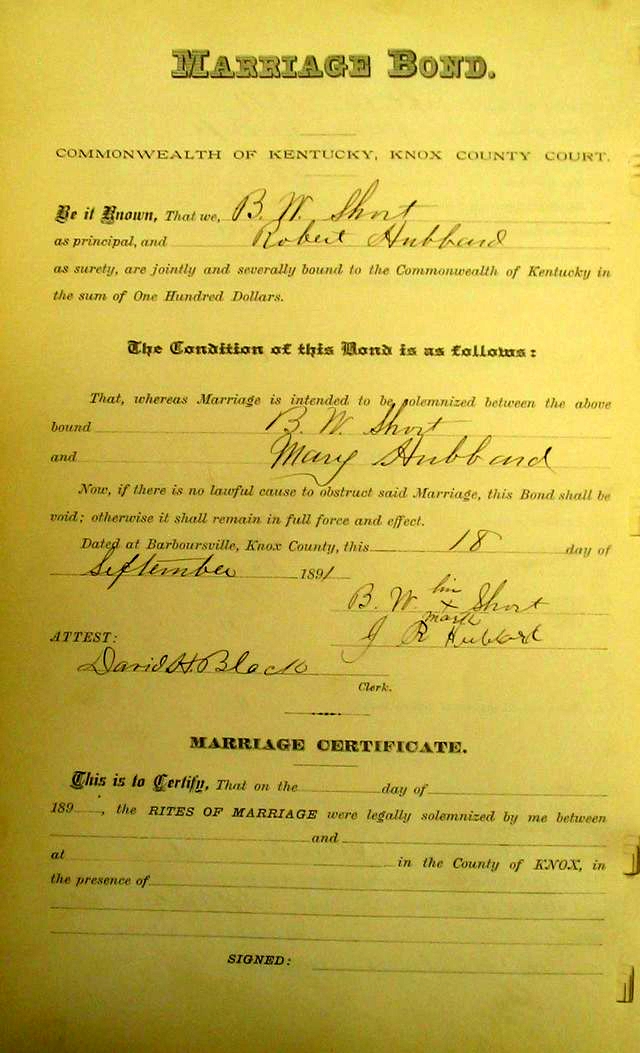 MARRIAGE BOND.
COMMONWEALTH OF KENTUCKY, KNOX COUNTY COURT.
Be it Known, That we, B. W. Short
as principal, and Robert Hubbard
as surety, are jointly and severally bound to the Commonwealth of Kentucky in
the sum of One Hundred Dollars.
The Condition of this Bond is as follows:
That, whereas Marriage is intended to be solemnized between the above
bound B. W. Short
and Mary Hubbard
Now, if there is no lawful cause to obstruct said Marriage, this Bond shall be
void; otherwise it shall remain in full force and effect.
Dated at Barboursville, Knox County, this 18 day of
September 1891
his
B. W. x Short
mark
ATTEST: J R Hubbard
David H. Black
Clerk.
MARRIAGE CERTIFICATE.
This is to Certify, That on the day of
189 , the RITES OF MARRIAGE were legally solemnized by me between
and
at in the County of KNOX, in
the presence of
SIGNED: